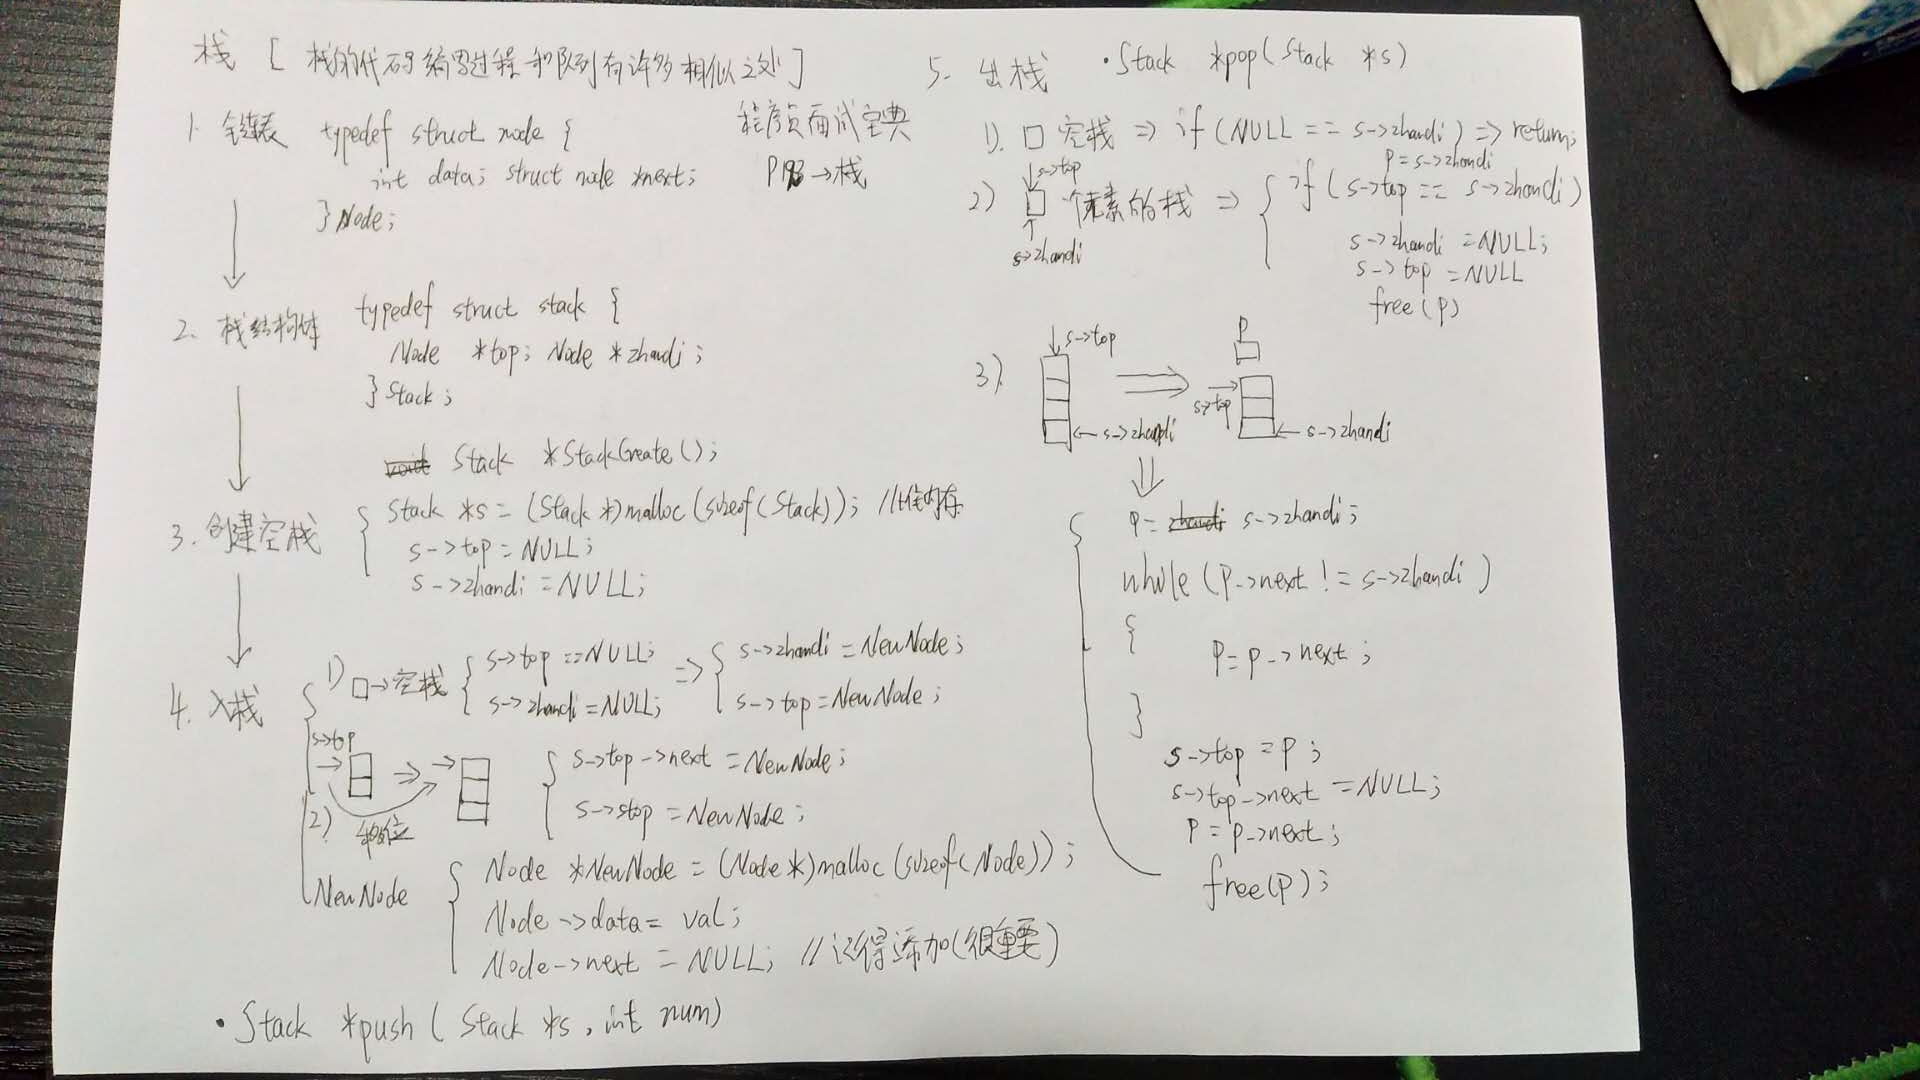 栈 [ 栈的代码编写过程和队列有许多相似之处 ]
程序员面试宝典
P193 → 栈
1. 链表 typedef struct node {
int data; struct node *next;
} Node;
2. 栈结构体 typedef struct stack {
Node *top; Node *zhandi;
} Stack;
Stack *StackCreate();
3. 创建空栈 { Stack *s = (Stack *)malloc(sizeof(Stack)); //
s->top = NULL;
s->zhandi = NULL;
4. 入栈
1) □→空栈 { s->top == NULL; => { s->zhandi = NewNode;
s->zhandi = NULL; s->top = NewNode;
s->top
2) { s->top->next = NewNode;
s->stop = NewNode;
NewNode { Node *NewNode = (Node*)malloc(sizeof(Node));
Node->data = val;
Node->next = NULL; //记得添加(很重要)
· Stack *push( Stack *s, int num)
5. 出栈 · Stack *pop( Stack *s)
1). □ 空栈 => if (NULL == s->zhandi) => return;
P = s->zhandi
s->top
2) 个素的栈 => { if (s->top == s->zhandi)
s->zhandi
s->zhandi = NULL;
s->top = NULL
free(p)
3).
s->top
s->zhandi
P
s->top
s->zhandi
P = s->zhandi;
while (P->next != s->zhandi)
{
P = p->next;
}
s->top = P;
s->top->next = NULL;
P = P->next;
free(P);